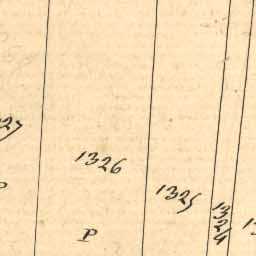 1326
1325
1324
P